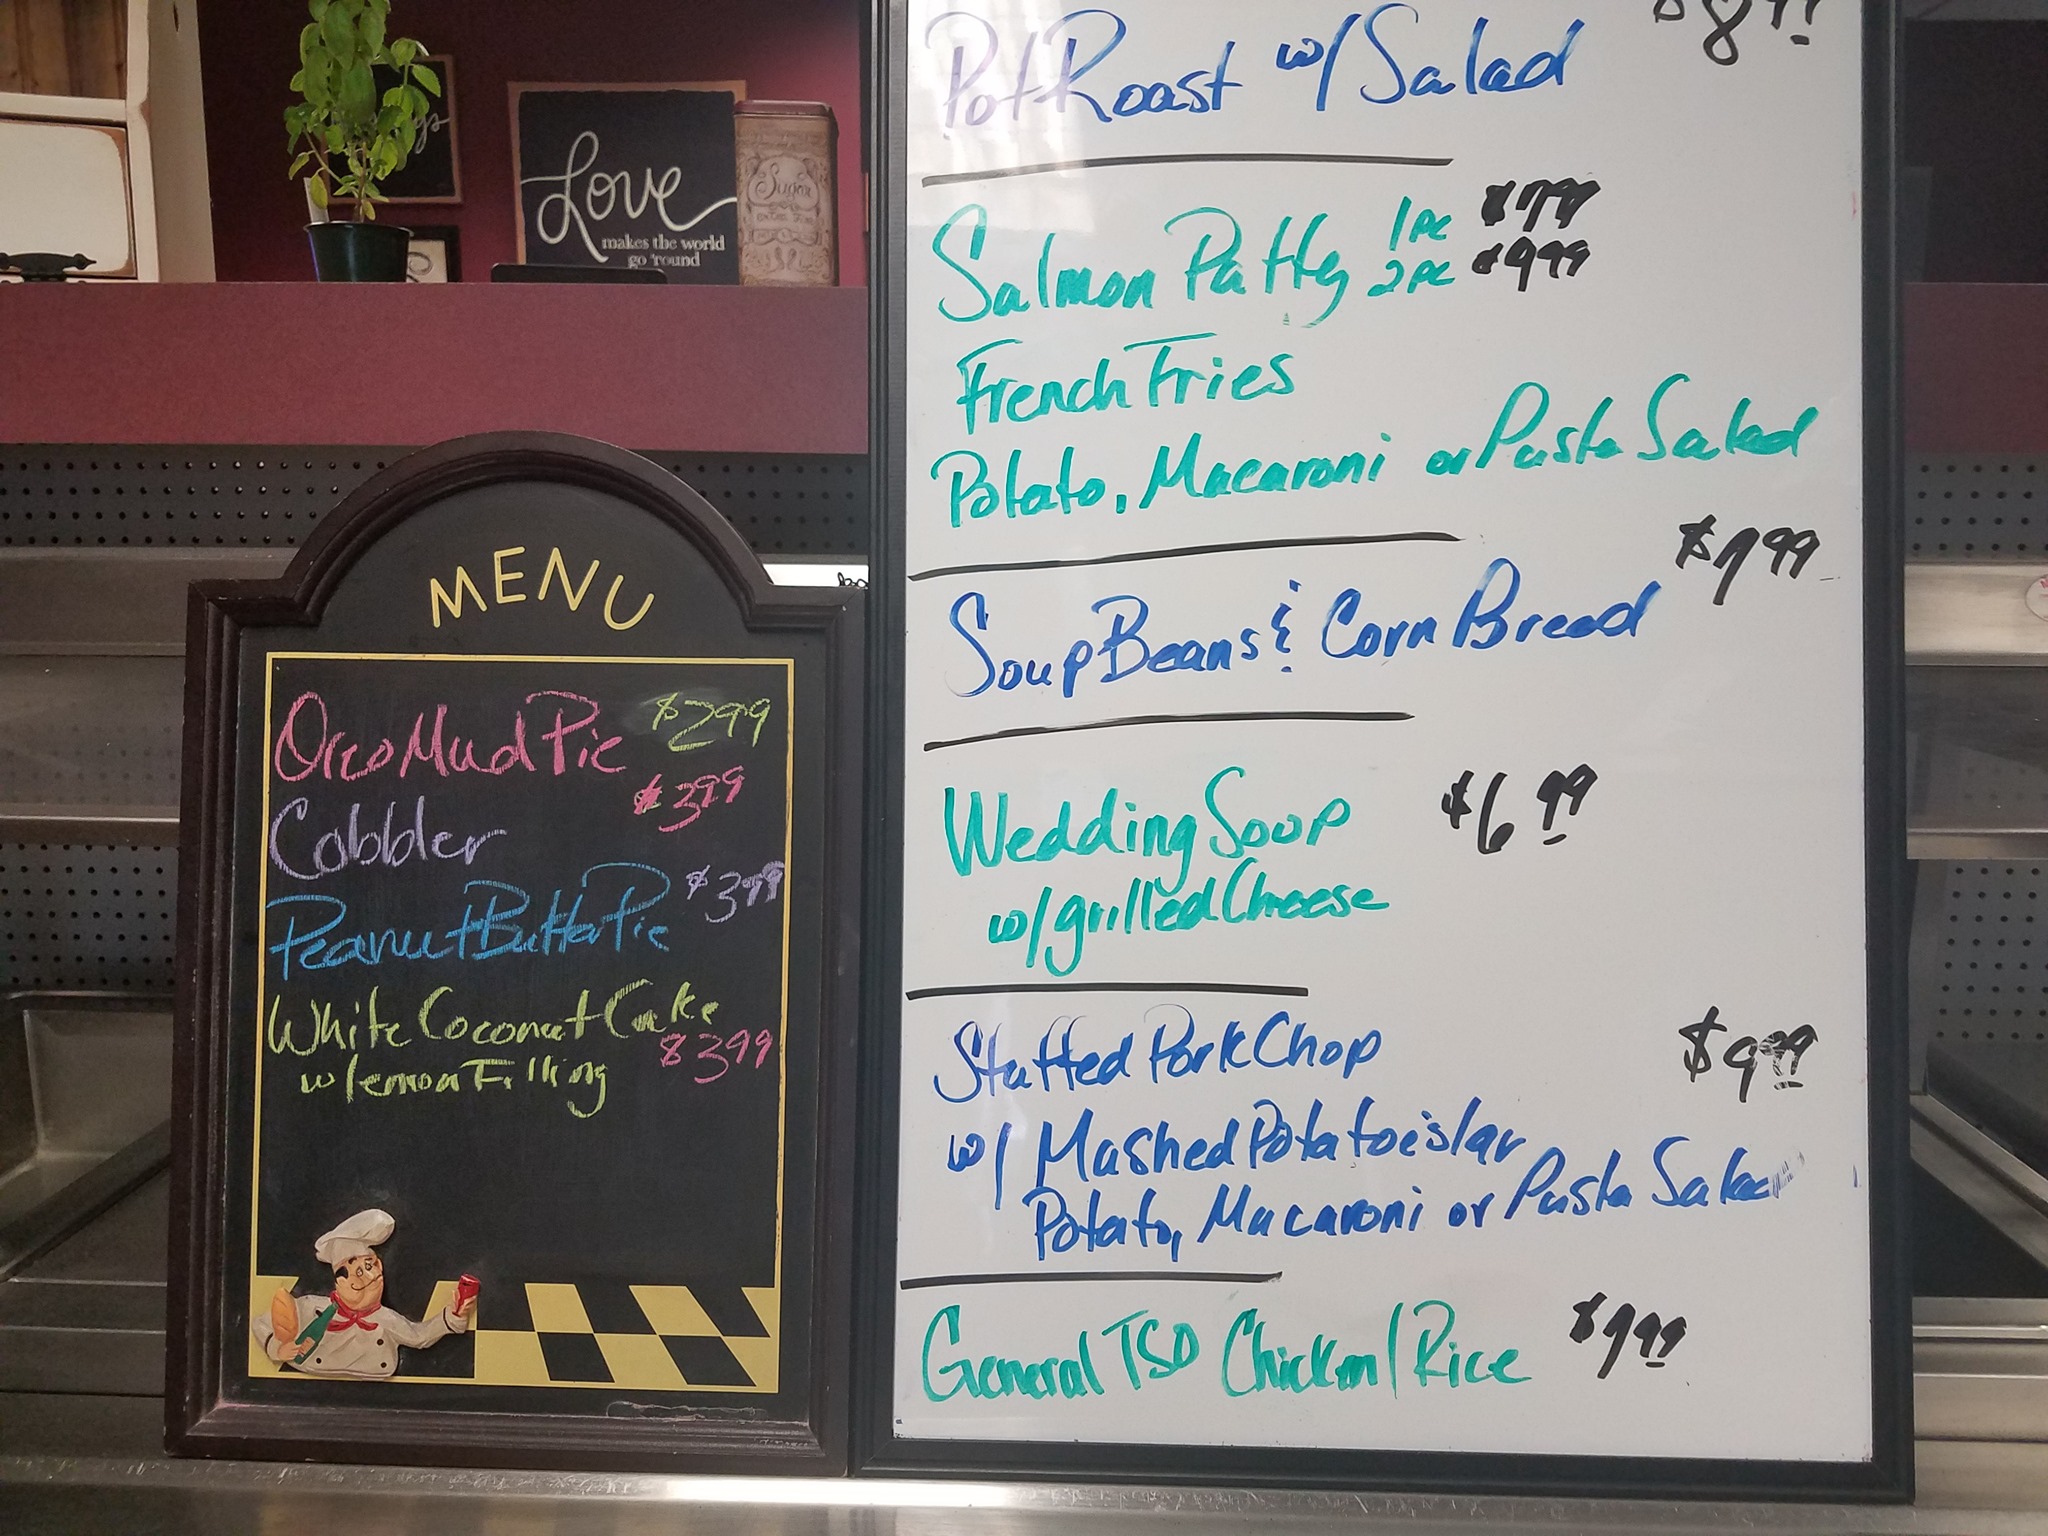 Love
makes the world
go 'round
Sugar
MENU
Oreo Mud Pie $2 99
Cobbler $3 99
Peanut Butter Pie $3 99
White Coconut Cake
w/lemon Filling $3 99
$8 99
Pot Roast w/Salad
Salmon Patty 1pc $7 99
2pc $9 99
French Fries
Potato, Macaroni or Pasta Salad
$7 99
Soup Beans & Corn Bread
Wedding Soup $6 99
w/grilled Cheese
Stuffed Pork Chop $9 99
w/ Mashed Potatoe
Potato, Macaroni or Pasta Salad
General TSO Chicken/Rice $9 99